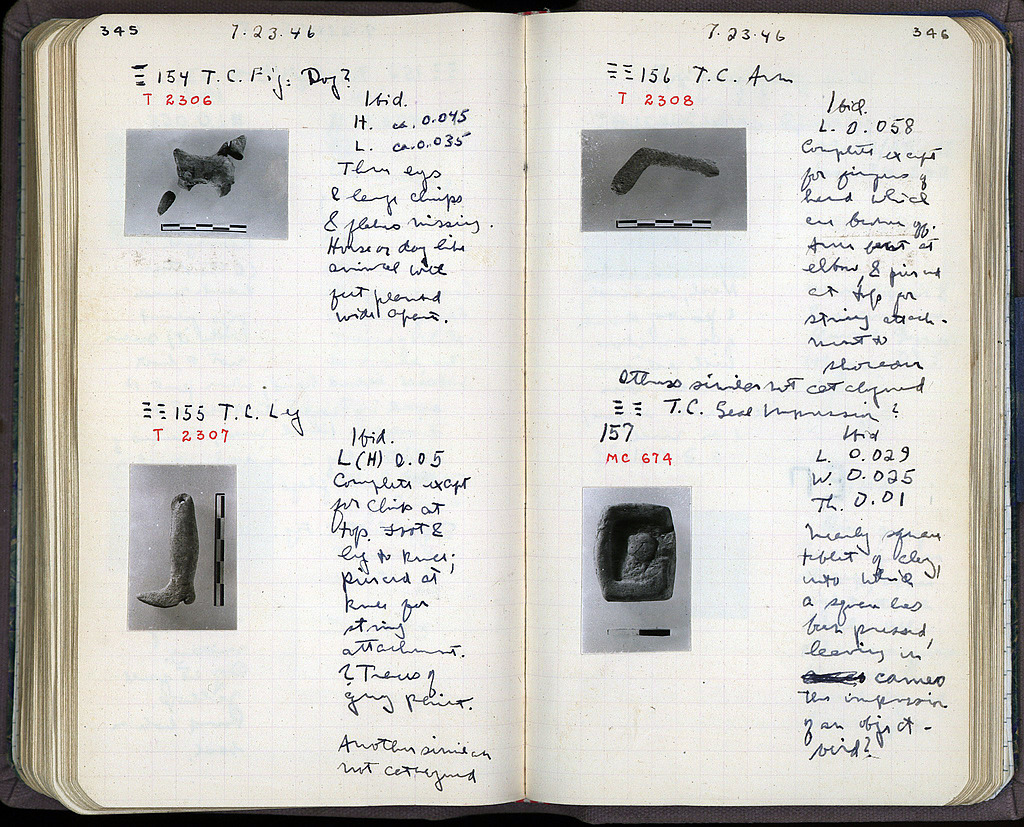 345
7.23.46
Ξ 154 T.C. Fig: Dog?
T 2306
Ibid.
H. ca. 0.045
L. ca. 0.035
Three legs
& large chips
& flakes missing.
Horse or dog like
animal with
feet planted
wide apart.
ΞΞ 155 T.C. Leg
T 2307
Ibid.
L(H) 0.05
Complete except
for chips at
top. Foot &
leg to knee;
pierced at
knee for
string
attachment.
? Traces of
gray paint.
Another similar
not catalogued
7.23.46
346
ΞΞ 156 T.C. Arm
T 2308
Ibid.
L. 0.058
Complete except
for fingers of
hand which
are broken off.
Arm bent at
elbow, & pierced
at top for
string attach-
ment to
shoulder
Others similar not catalogued
ΞΞ T.C. Seal Impression?
157
MC 674
Ibid
L. 0.029
W. 0.025
Th. 0.01
Nearly square
tablet of clay,
into which
a square has
been pressed,
leaving in
cameo
the impression
of an object -
bird?